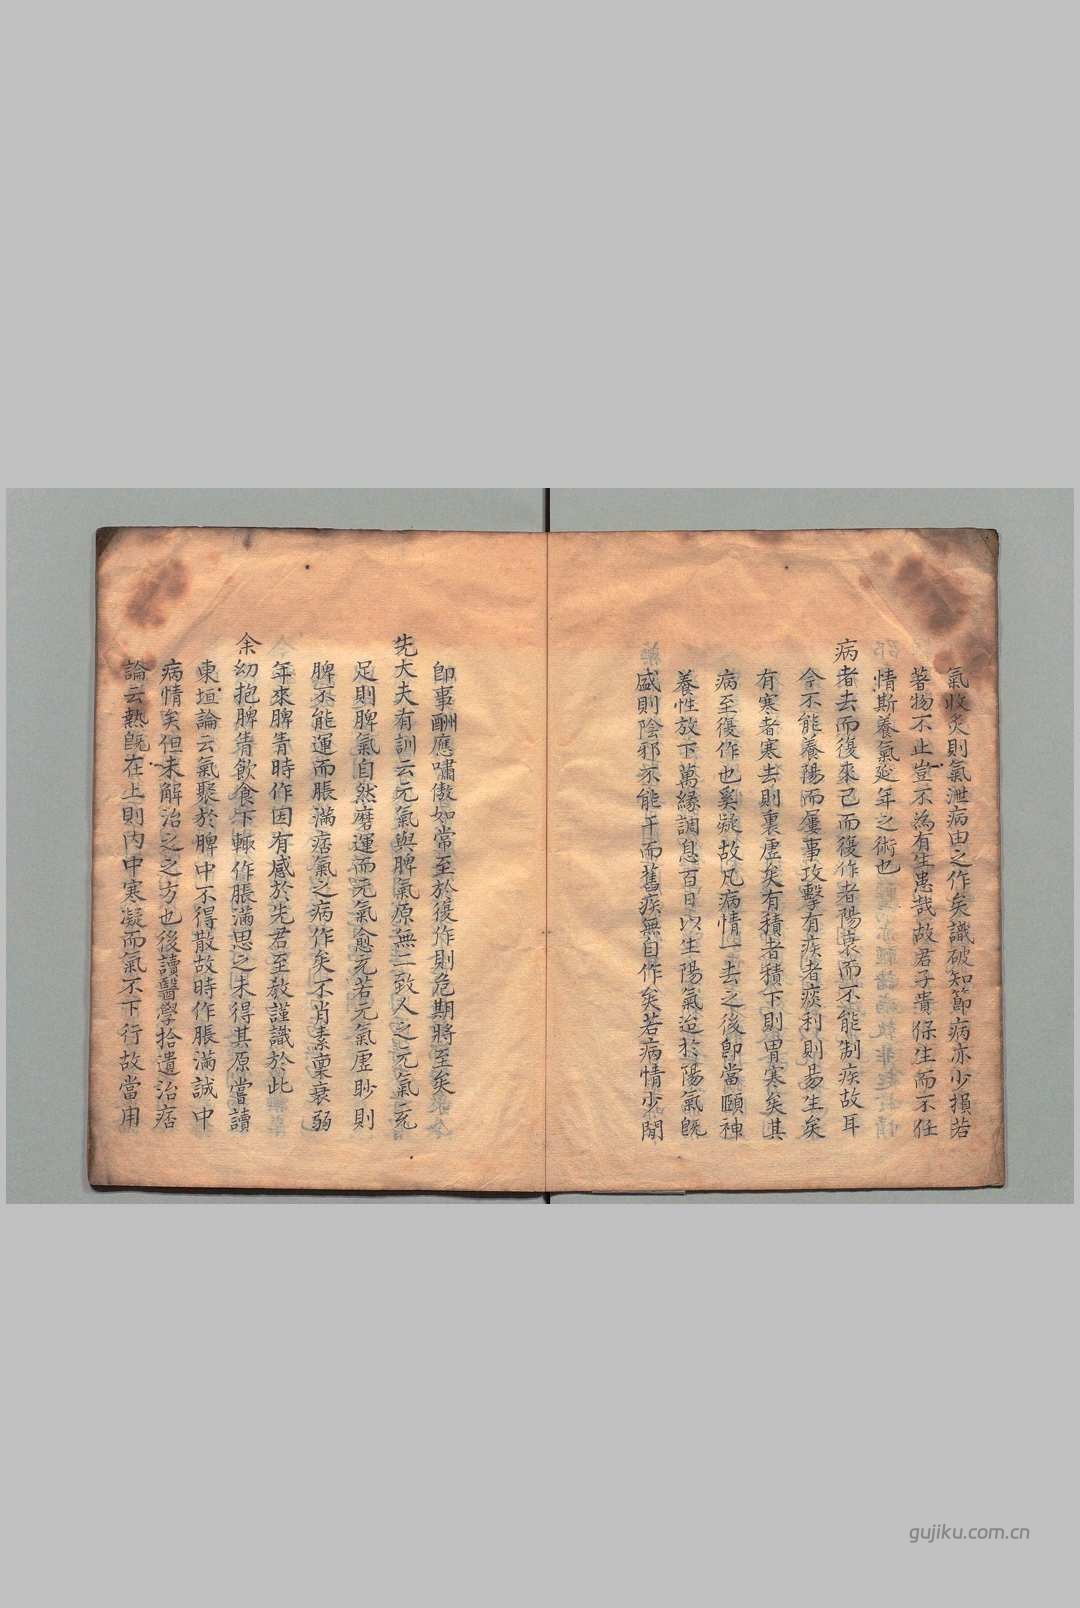 氣收炙則氣泄病由之作矣識破知節病亦少損若
著物不止豈不為有生患哉故君子貴保生而不任
情斯養氣延年之術也
病者去而復來已而復作者陽衰而不能制疾故耳
今不能養陽而屢事攻擊有疾者痰利則易生矣
有寒者寒去則裏虛矣有積者積下則胃寒矣其
病至復作也奚疑故凡病情一去之後即當頤神
養性放下萬緣調息百日以生陽氣迨於陽氣既
盛則陰邪亦能干而舊疾無自作矣若病情少閒
即事酬應嘯傲如常至於復作則危期將至矣
先大夫有訓云元氣與脾氣原無二致人之元氣充
足則脾氣自然磨運而元氣愈充若元氣虛眇則
脾不能運而脹滿痞氣之病作矣不肖素稟衰弱
年來脾胃時作因有感於先君至教謹識於此
余幼抱脾胃飲食下輙作脹滿思之未得其原嘗讀
東垣論云氣聚於脾中不得散故時作脹滿誠中
病情矣但未解治之之方也後讀醫學拾遺治痞
論云熱既在上則內中寒凝而氣不下行故當用
gujiku.com.cn